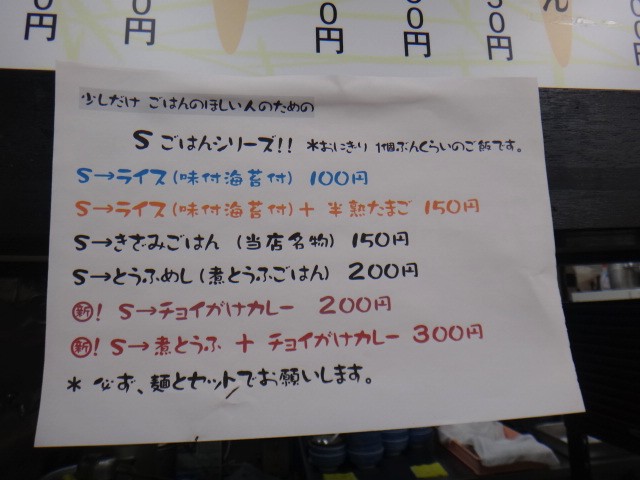 0円
0円
0円
00円
50円
ん
0円
少しだけ ごはんのほしい人のための
S ごはんシリーズ!! *おにぎり 1個ぶんくらいのご飯です。
S→ライス(味付海苔付) 100円
S→ライス(味付海苔付)+半熟たまご 150円
S→きざみごはん (当店名物) 150円
S→とうふめし(煮とうふごはん) 200円
㊟! S→チョイがけカレー 200円
新! S→煮とうふ + チョイがけカレー 300円
* 必ず、麺とセットでお願いします。